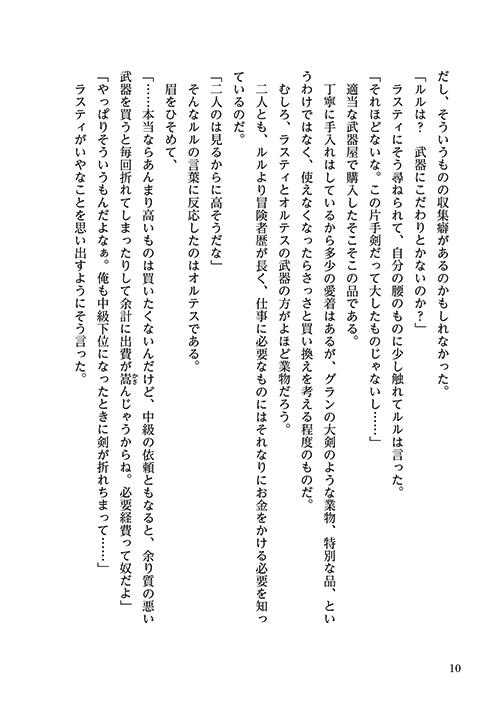 だし、そういうものの収集癖があるのかもしれなかった。
「ルルは？　武器にこだわりとかないのか？」
ラスティにそう尋ねられて、自分の腰のものに少し触れてルルは言った。
「それほどないな。この片手剣だって大したものじゃないし……」
適当な武器屋で購入したそこそこの品である。
丁寧に手入れはしているから多少の愛着はあるが、グランの大剣のような業物、特別な品、とい
うわけではなく、使えなくなったらさっさと買い換えを考える程度のものだ。
むしろ、ラスティとオルテスの武器の方がよほど業物だろう。
二人とも、ルルより冒険者歴が長く、仕事に必要なものにはそれなりにお金をかける必要を知っ
ているのだ。
「二人のは見るからに高そうだな」
そんなルルの言葉に反応したのはオルテスである。
眉をひそめて、
「……本当ならあんまり高いものは買いたくないんだけど、中級の依頼ともなると、余り質の悪い
武器を買うと毎回折れてしまったりして余計に出費が嵩んじゃうからね。必要経費って奴だよ」
かさ
「やっぱりそういうもんだよなぁ。俺も中級下位になったときに剣が折れちまって……」
ラスティがいやなことを思い出すようにそう言った。
10